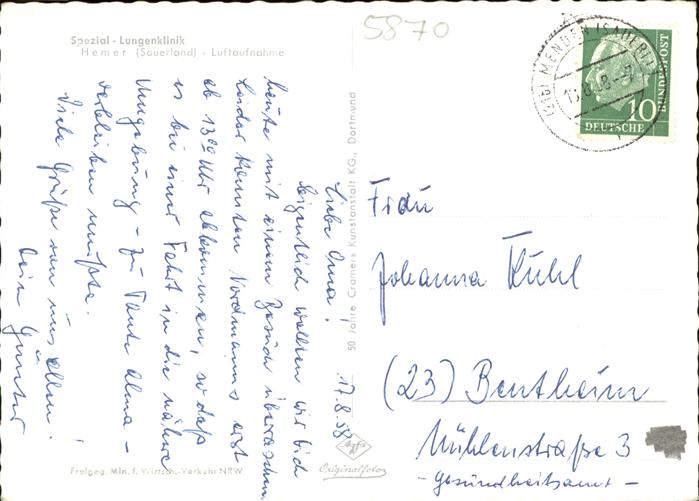 5870
Spezial - Lungenklinik
Hemer (Sauerland) - Luftaufnahme
MENDEN (SAUERL)
DEUTSCHE
BUNDESPOST
10
17.8.58
Liebe Oma!
Eigentlich wollten wir Dich
heute mit einem Besuch überraschen,
leider konnten Nordmanns erst
ab 13⁰⁰ Uhr abkommen, so daß
es bei einer Fahrt in die nähere
Umgebung - zu Tante Alma -
verbleiben mußte.
Viele Grüße von uns allen!
Dein Günter
50 Jahre Cramers Kunstanstalt KG., Dortmund
Frau
Johanna Kuhl
(23) Bentheim
Mühlenstraße 3
- Gesundheitsamt -
Freigeg. Min. f. Wirtsch.-Verkehr NRW
Agfa
Originalfoto